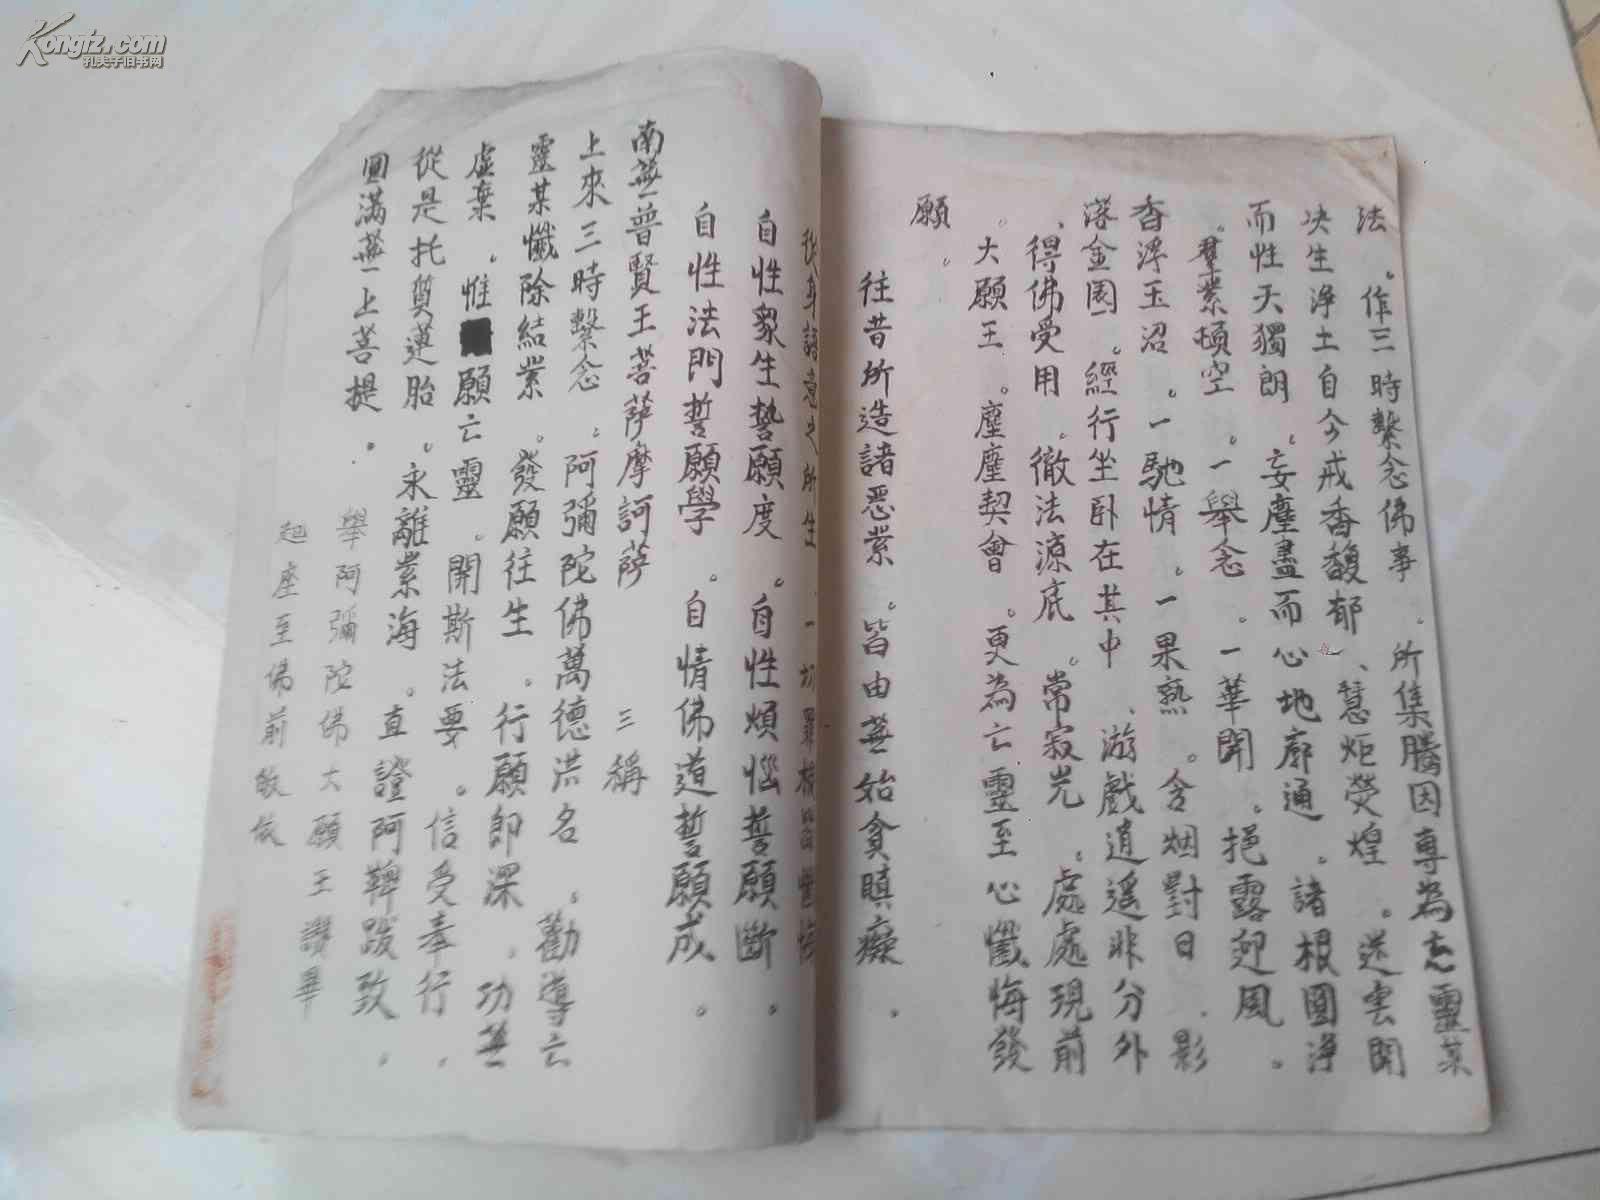 法。作三時繫念佛事。所集勝因專為亡靈某
决生淨土自今戒香馥郁、慧炬熒煌。迷雲開
而性天獨朗。妄塵盡而心地廓通。諸根圓淨
。羣業頓空。一舉念。一華開。挹露迎風。
香浮玉沼。一馳情。一果熟。含烟對日、影
落金園。經行坐卧在其中、游戲逍遙非分外
、得佛受用。徹法源底。常寂光。處處現前
。大願王。塵塵契會。更為亡靈至心懺悔發
願。
往昔所造諸恶業。皆由無始貪瞋癡。
從身語意之所生、一切罪根皆懺悔
自性衆生誓願度。自性煩惱誓願斷。
自性法門誓願學。自情佛道誓願成。
南無普賢王菩薩摩訶薩 三稱
上來三時繫念。阿彌陀佛萬德洪名。勸導亡
靈某懺除結業。發願往生。行願即深。功無
虛棄。惟願亡靈。開斯法要。信受奉行。
從是托質蓮胎。永離業海。直證阿鞞跋致。
圓滿無上菩提。
舉阿彌陀佛大願王讚畢
起座至佛前皈依
Kongfz.com
孔夫子旧书网